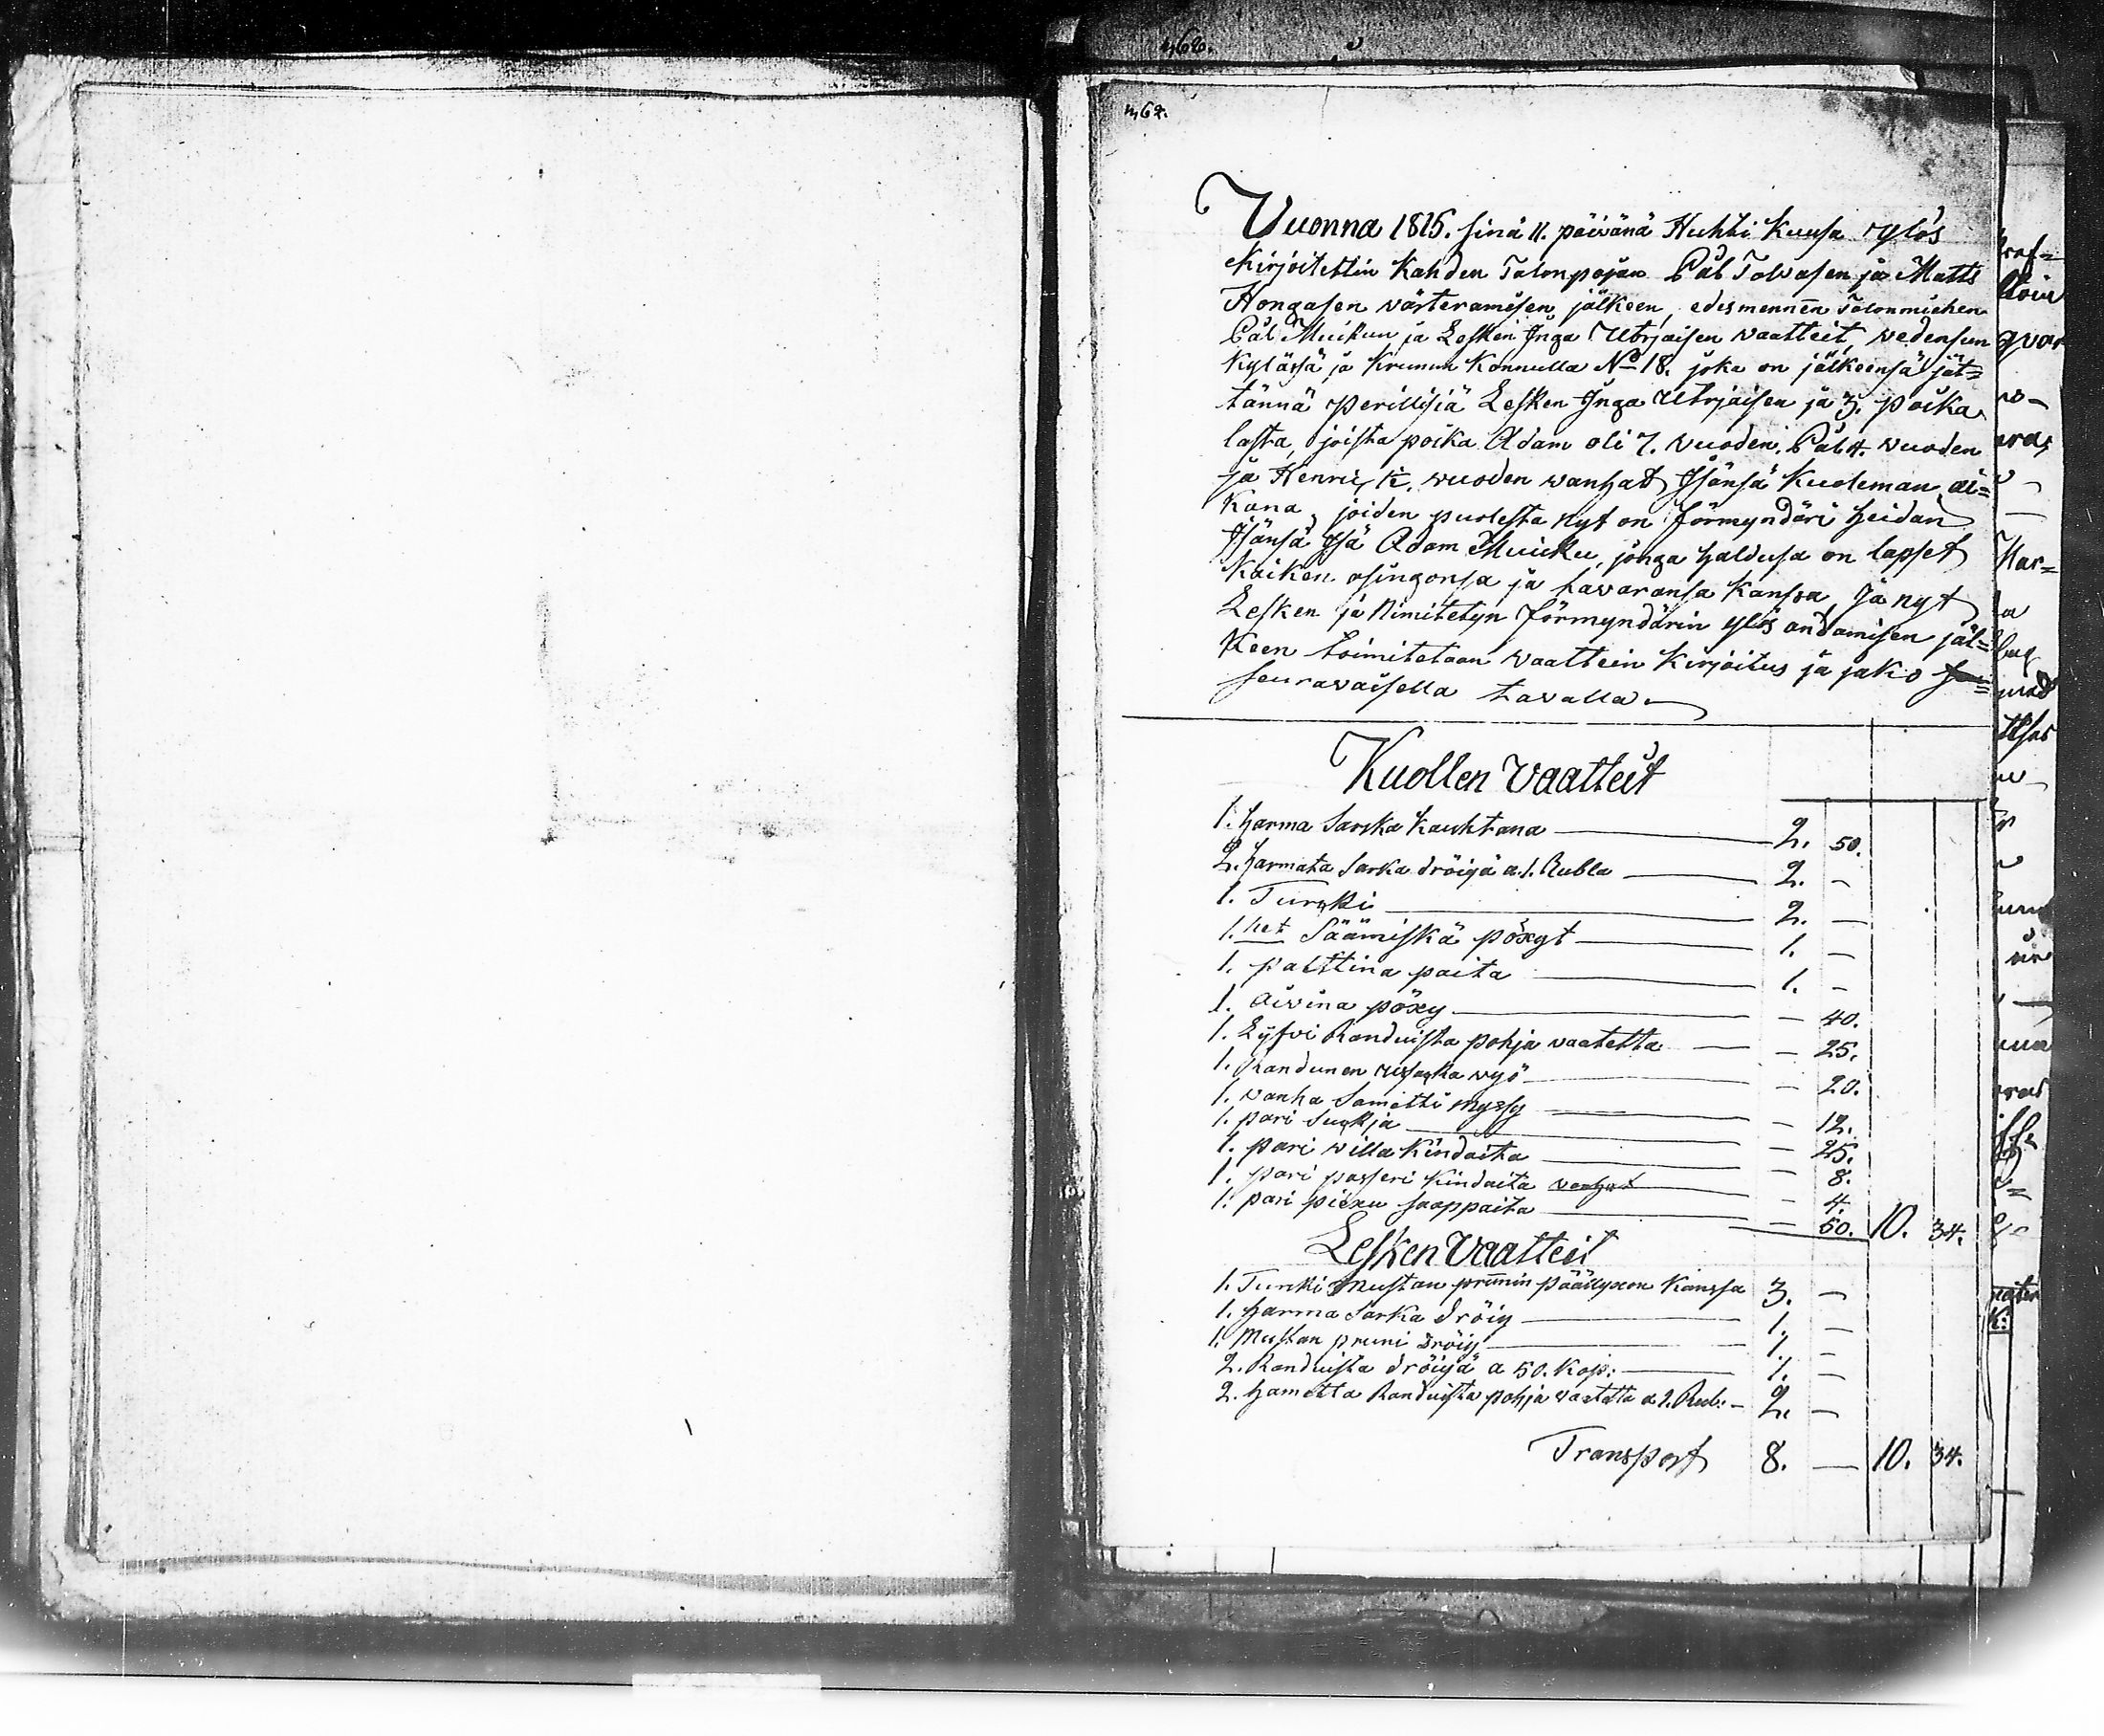 462.
Vuonna 1815. sinä 11. päivänä Huhti Kuusa ylös
Kirjoitettin Kahden Talonpojan Pål Tolvasen ja Matts
Hongasen värteramisen jälkeen, edesmennen Talonmiehen
Pål Muikun ja Lesken Inga Utrjaisen vaatteit, vedensun
Kylässä ja Krunun Konnulla No 18. joka on jälkeensä jät=
tännä perillisiä Lesken Inga Utrjaisen ja 3. poika
lasta, joista poika Adam oli 7. vuoden. Pål 4. vuoden
ja Henric ½. vuoden vanhat Isänsä Kuoleman ai=
kana, joiden puolesta nyt on förmyndäri heidän
Isänsä Isä Adam Muiku, jonga haldusa on lapset
Kaiken osingonsa ja tavaransa Kanssa, Ja nyt
Lesken ja Nimitetyn förmyndärin ylös andamisen jäl=
Keen toimitetaan vaattein Kirjoitus ja jako
seuravaisella tavalla
Kuollen Vaatteit
1. harma Sarka Kauhtana 2. 50.
2. harmata Sarka dröijä a 1. Rubla 2. –
1. Turkki 2. –
1. het Säämiskä pöxyt 1. –
1. palttina paita 1. –
1. Aivina pöxy – 40.
1. Lijvi Randuista pohja vaatetta – 25.
1. Randunen vyö – 20.
1. vanha Sametti myssy – 12.
1. pari Sukkja – 25.
1. pari villa Kindaita – 8.
1. pari passeri Kindaita vanhat – 4.
1. pari piexu saappaita – 50. 10. 34.
Lesken Vaatteit
1. Turkki Mustan prunin päälyxen Kanssa 3. –
1. harma Sarka dröiy 1. –
1. Mustan pruni Dröiy 1. –
2. Randuista dröijä a 50. Kop: 1. –
2. hametta Randuista pohja vaatetta a 1. Rub: – 2. –
Transport 8. – 10. 34.